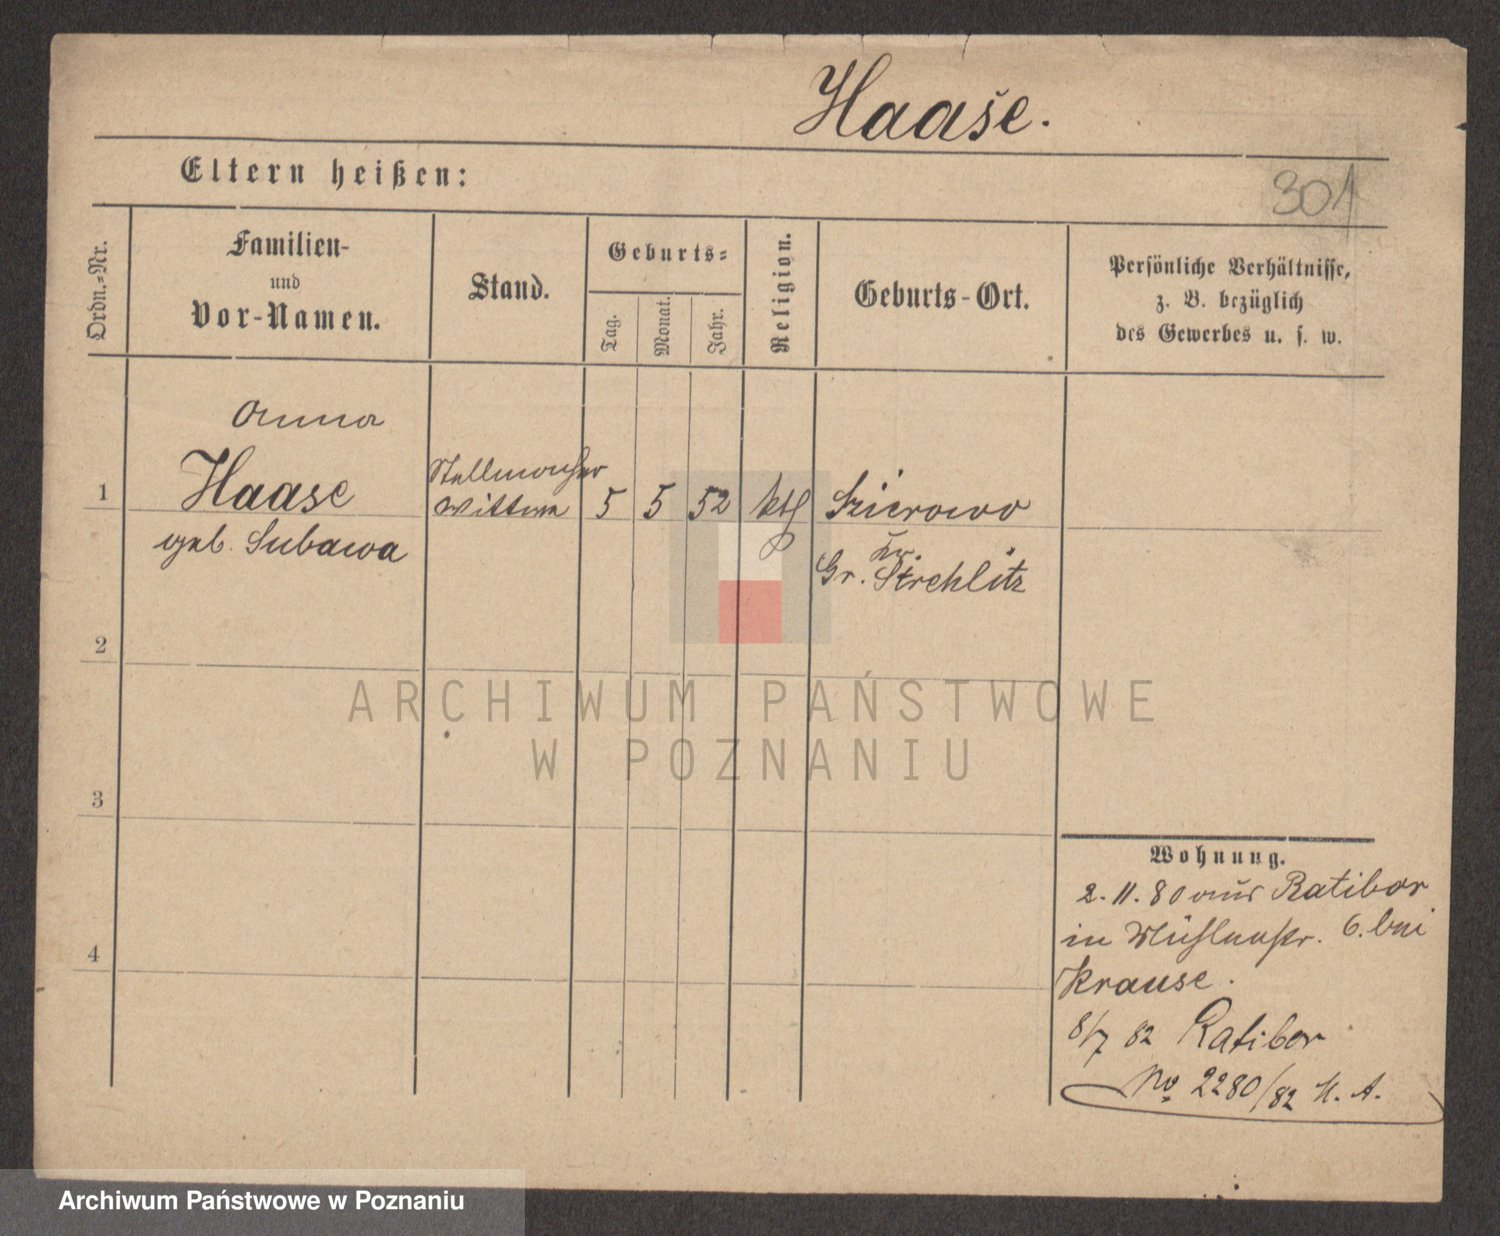 Haase.
Eltern heißen:
301
Ordn.-Nr.
Familien-
und
Vor-Namen.
Stand.
Geburts-
Tag.
Monat.
Jahr.
Religion.
Geburts-Ort.
Persönliche Verhältnisse,
z. B. bezüglich
des Gewerbes u. s. w.
Anna
1 Haase
geb. Subawa
Stellmacher
Wittwe
5 5 52 kth
Szierowo
Kr.
Gr. Strehlitz
2
ARCHIWUM PAŃSTWOWE
W POZNANIU
3
4
Wohnung.
2. 11. 80 aus Ratibor
in Mühlenstr. 6. bei
Krause.
8/7 82 Ratibor
No 2280/82 U. A.
Archiwum Państwowe w Poznaniu